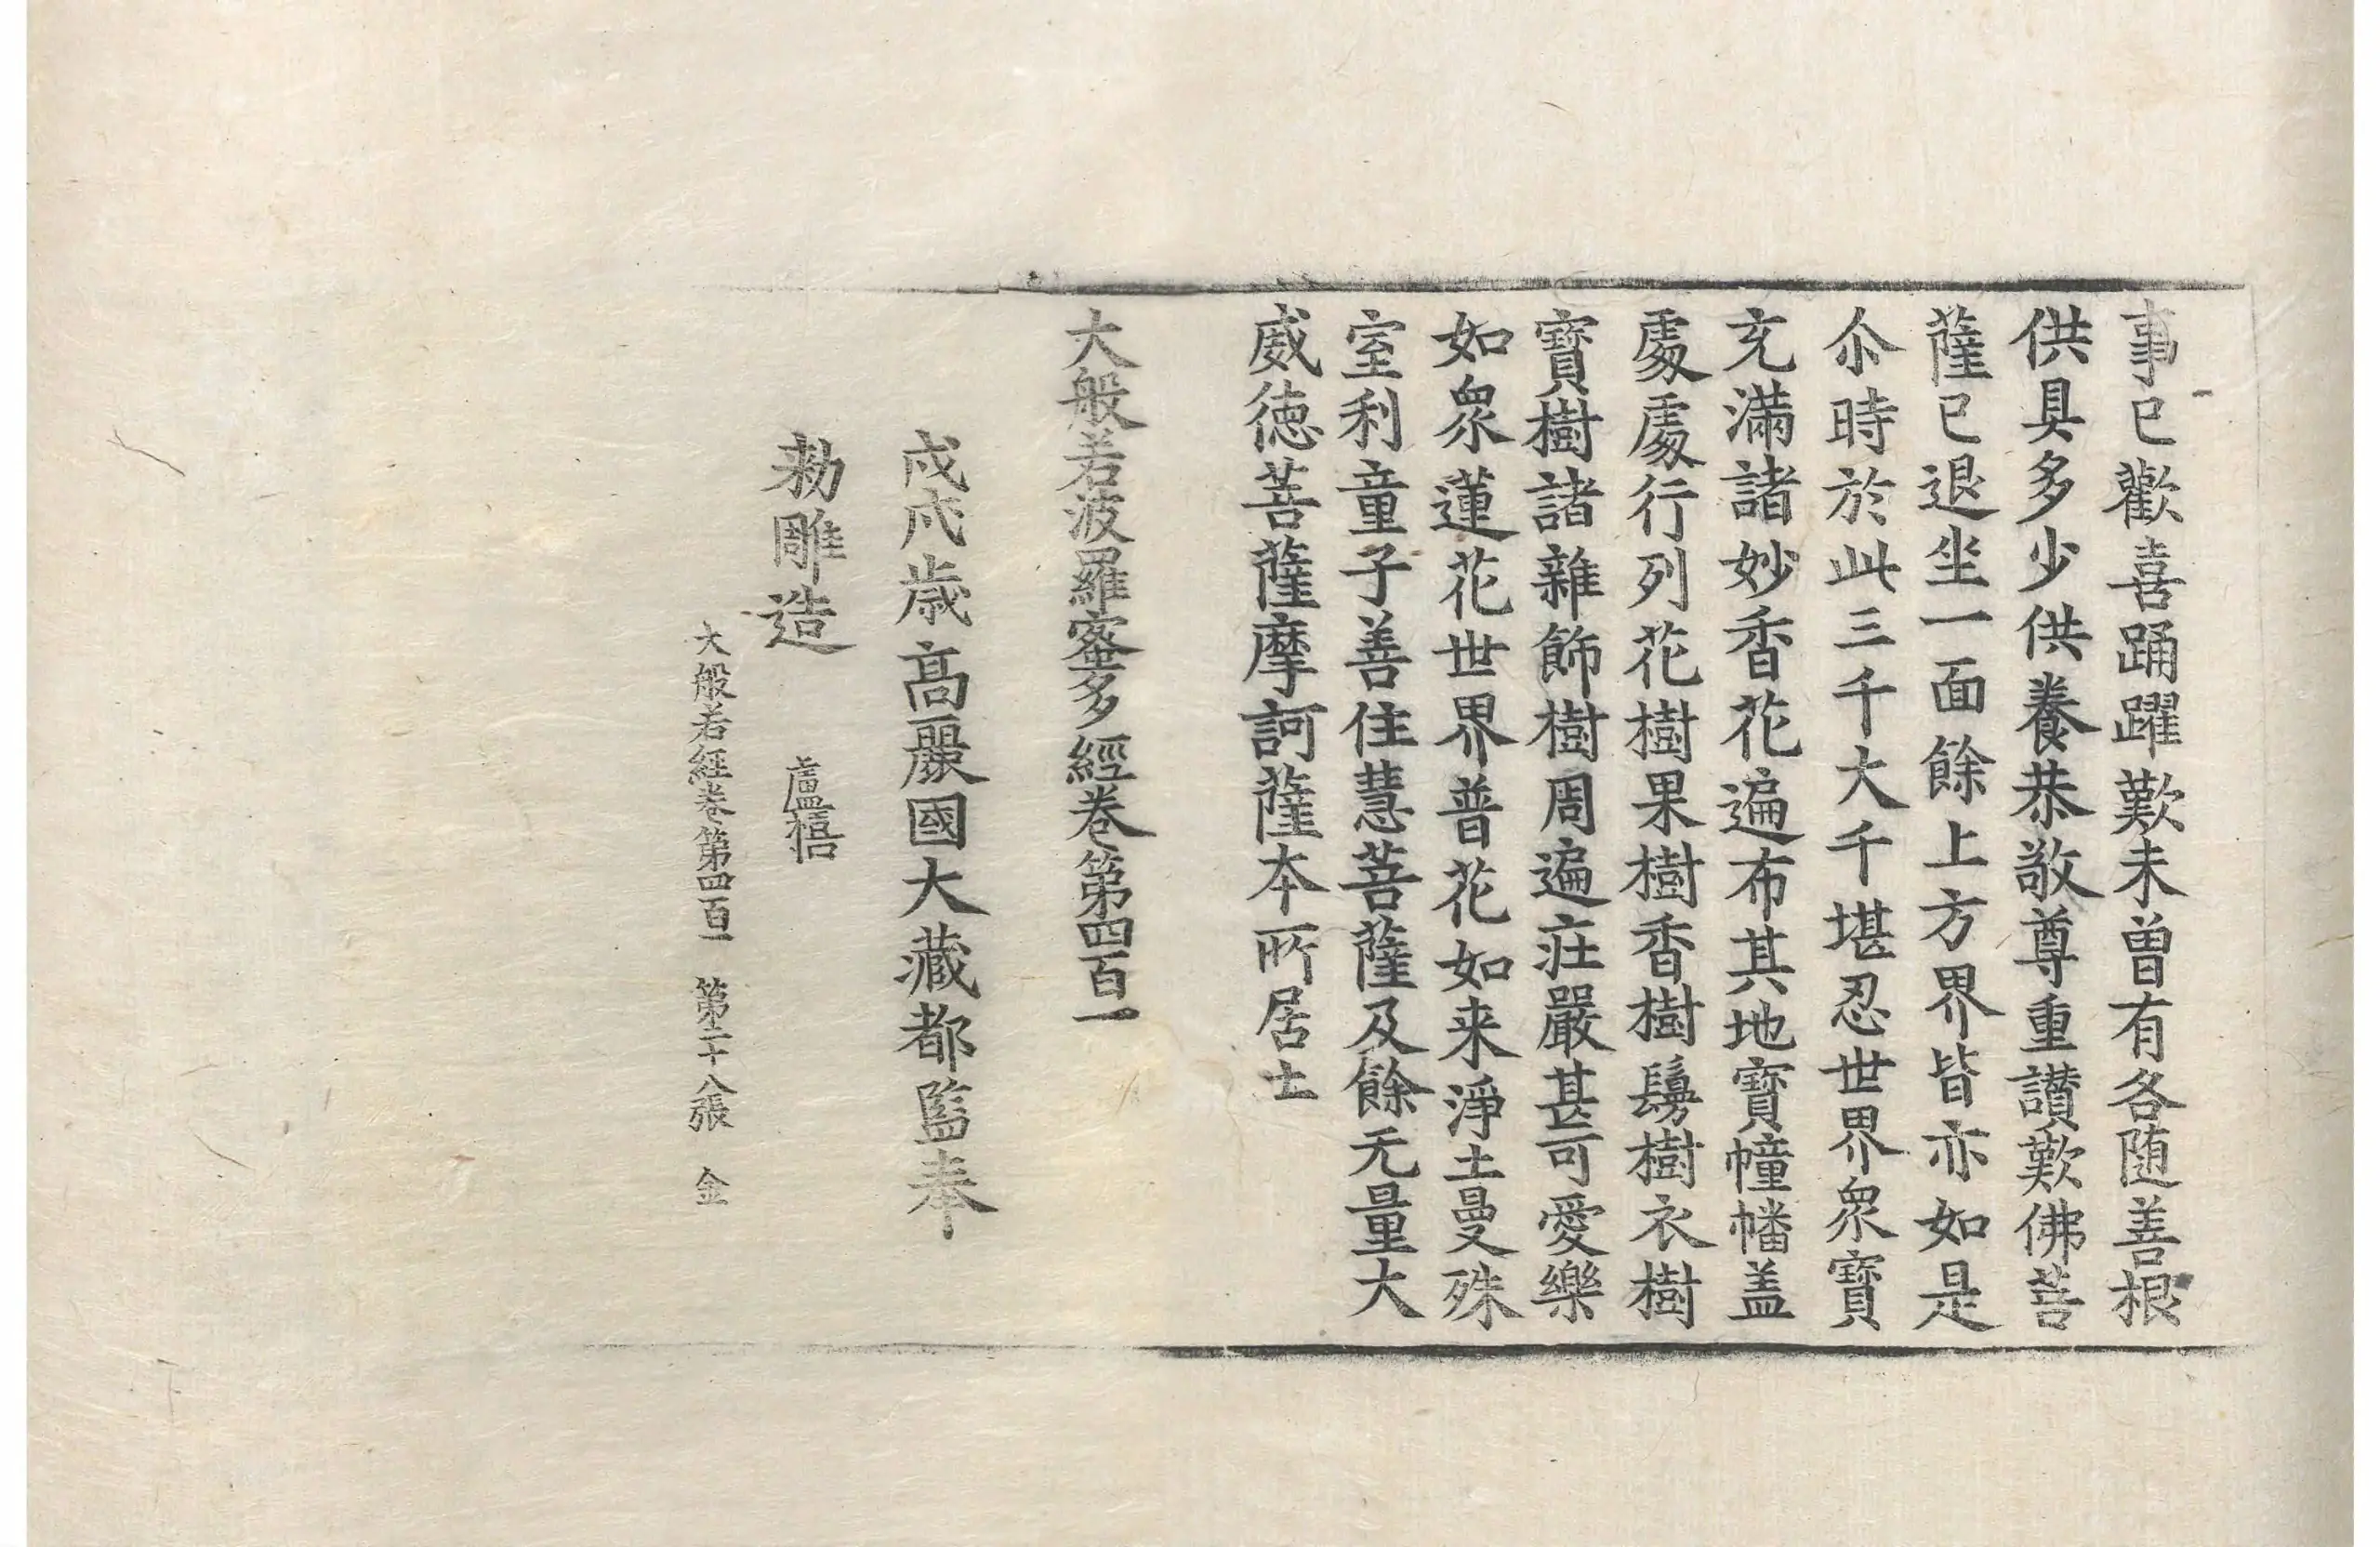 事已歡喜踊躍歎未曽有各随善根
供具多少供養恭敬尊重讃歎佛菩
薩已退坐一面餘上方界皆亦如是
尒時於此三千大千堪忍世界衆寶
充滿諸妙香花遍布其地寶幢幡盖
處處行列花樹果樹香樹鬘樹衣樹
寶樹諸雜飾樹周遍莊嚴甚可愛樂
如衆蓮花世界普花如来淨土曼殊
室利童子善住慧菩薩及餘无量大
威徳菩薩摩訶薩本所居土
大般若波羅蜜多經卷第四百一
戊戌歲高麗國大藏都監奉
勑雕造 盧禧
大般若經卷第四百一 第二十八張 金